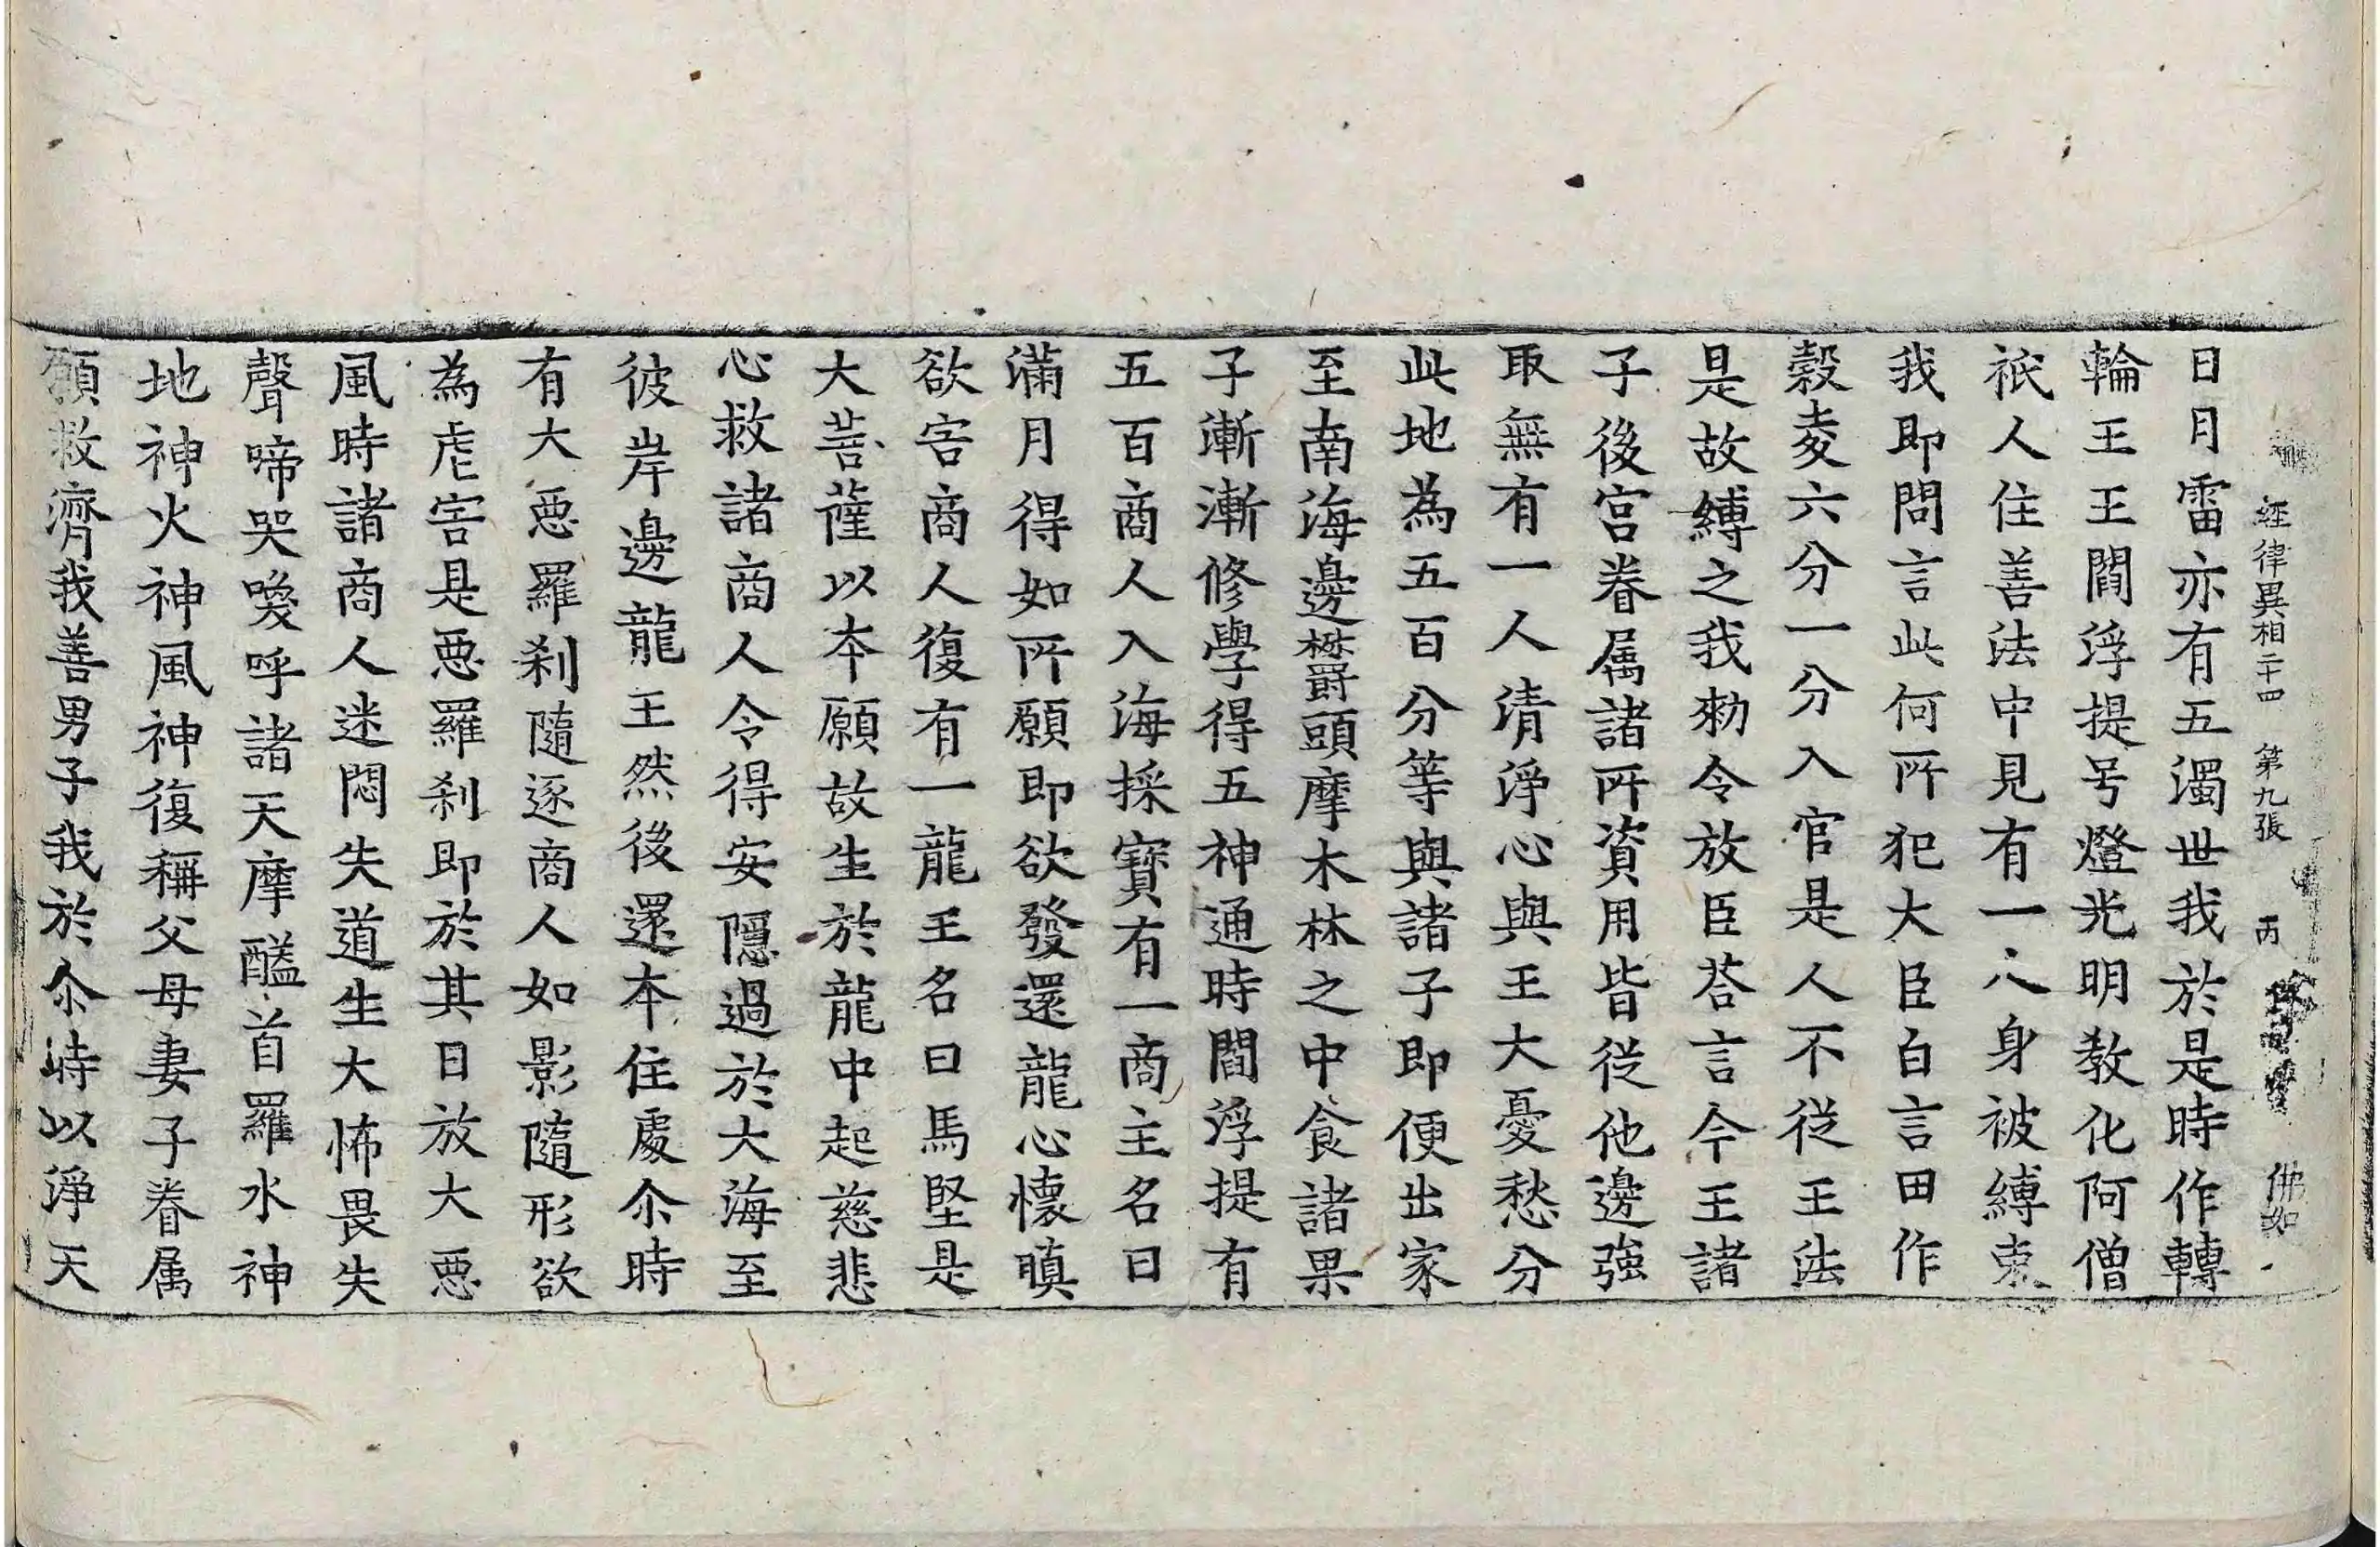 經律異相二十四 第九張 丙 佛如
日月雷亦有五濁世我於是時作轉
輪王王閻浮提号燈光明教化阿僧
祇人住善法中見有一人身被縛束
我即問言此何所犯大臣白言田作
穀麦六分一分入官是人不從王法
是故縛之我勑令放臣荅言今王諸
子後宮眷属諸所資用皆從他邊強
取無有一人清淨心與王大憂愁分
此地為五百分等與諸子即便出家
至南海邊欝頭摩木林之中食諸果
子漸漸修學得五神通時閻浮提有
五百商人入海採寶有一商主名曰
滿月得如所願即欲發還龍心懷瞋
欲害商人復有一龍王名曰馬堅是
大菩薩以本願故生於龍中起慈悲
心救諸商人令得安隱過於大海至
彼岸邊龍王然後還本住處尒時
有大惡羅剎隨逐商人如影隨形欲
為虐害是惡羅剎即於其日放大惡
風時諸商人迷悶失道生大怖畏失
聲啼哭喚呼諸天摩醯首羅水神
地神火神風神復稱父母妻子眷属
願救濟我善男子我於尒時以淨天